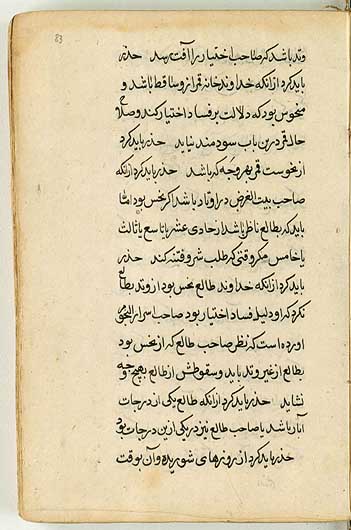 83
وتد باشد که صاحب اختیار را آفت رسد حذر
باید کرد از آنکه خداوند خانه قمر از و ساقط باشد و
منحوس بود که دلالت بر فساد اختیار کند وصلاح
حال قمر درین باب سودمند نیاید حذر باید کرد
از نحوست قمر بهر وجه که باشد حذر باید کرد از آنکه
صاحب بیت الغرض در اوتاد باشد اکر نحس بود امّا
باید که بطالع ناظر باشد از حادی عشر یا تاسع یا ثالث
یا خامس مکر وقتی که طلب شر و فتنه کند حذر
باید کرد از آنکه خداوند طالع نحس بود از وتد بطالع
نکرد که او دلیل فساد اختیار بود صاحب اسرار النجوم
اورده است که نظر صاحب طالع که از نحس بود
بطالع از غیر وتد باید و سقوطش از طالع بهیچ وجه
نشاید حذر باید کرد از آنکه طالع یکی از درجات
آبار باشد یا صاحب طالع نیز در یکی ازین درجات بود
حذر باید کرد از روزهای شوریده و آن بوقت